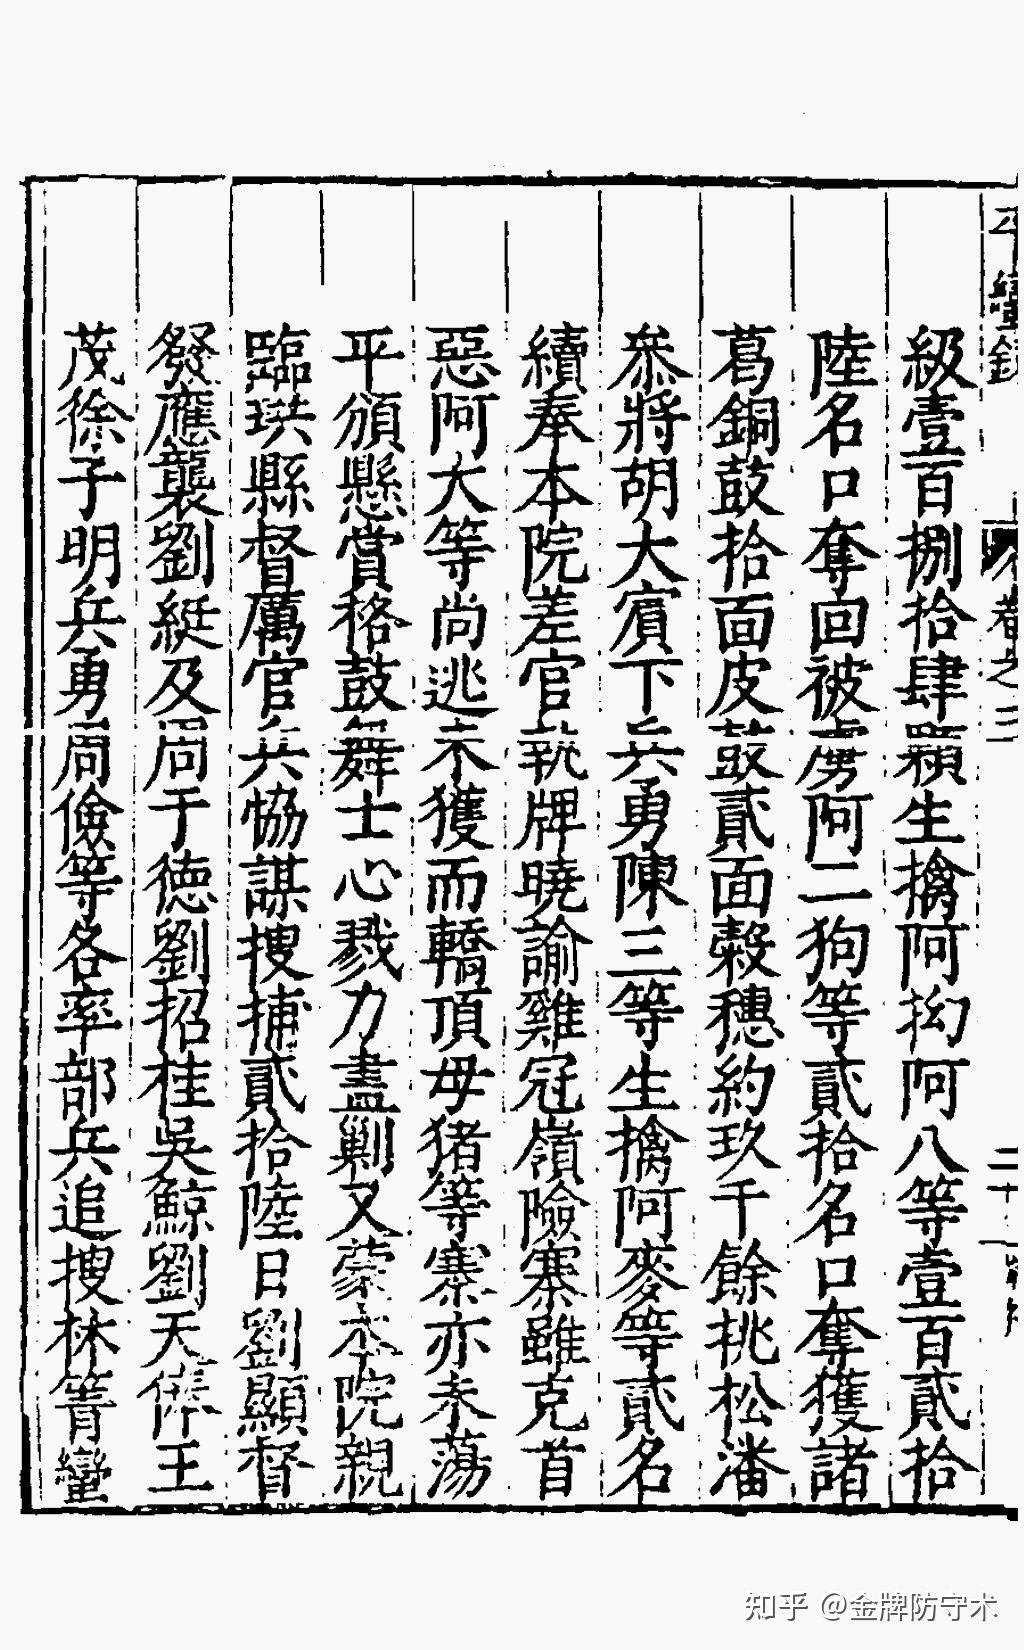 級壹百捌拾肆顆生擒阿㧓阿八等壹百貳拾
陸名口奪回被虜阿二狗等貳拾名口奪獲諸
葛銅鼓拾面皮鼓貳面榖穗約玖千餘挑松潘
叅將胡大賔下兵勇陳三等生擒阿麥等貳名
續奉本院差官執牌曉諭雞冠嶺險寨雖克首
惡阿大等尚逃未獲而轎頂母猪等寨亦未蕩
平頒懸賞格鼓舞士心戮力盡剿又蒙本院親
臨珙縣督厲官兵協謀搜捕貳拾陸日劉顯督
發應襲劉綎及周于德劉招桂吳鯨劉天俸王
茂徐子明兵勇周儉等各率部兵追搜林箐蠻
卷之三
二十一
知乎 @金牌防守术